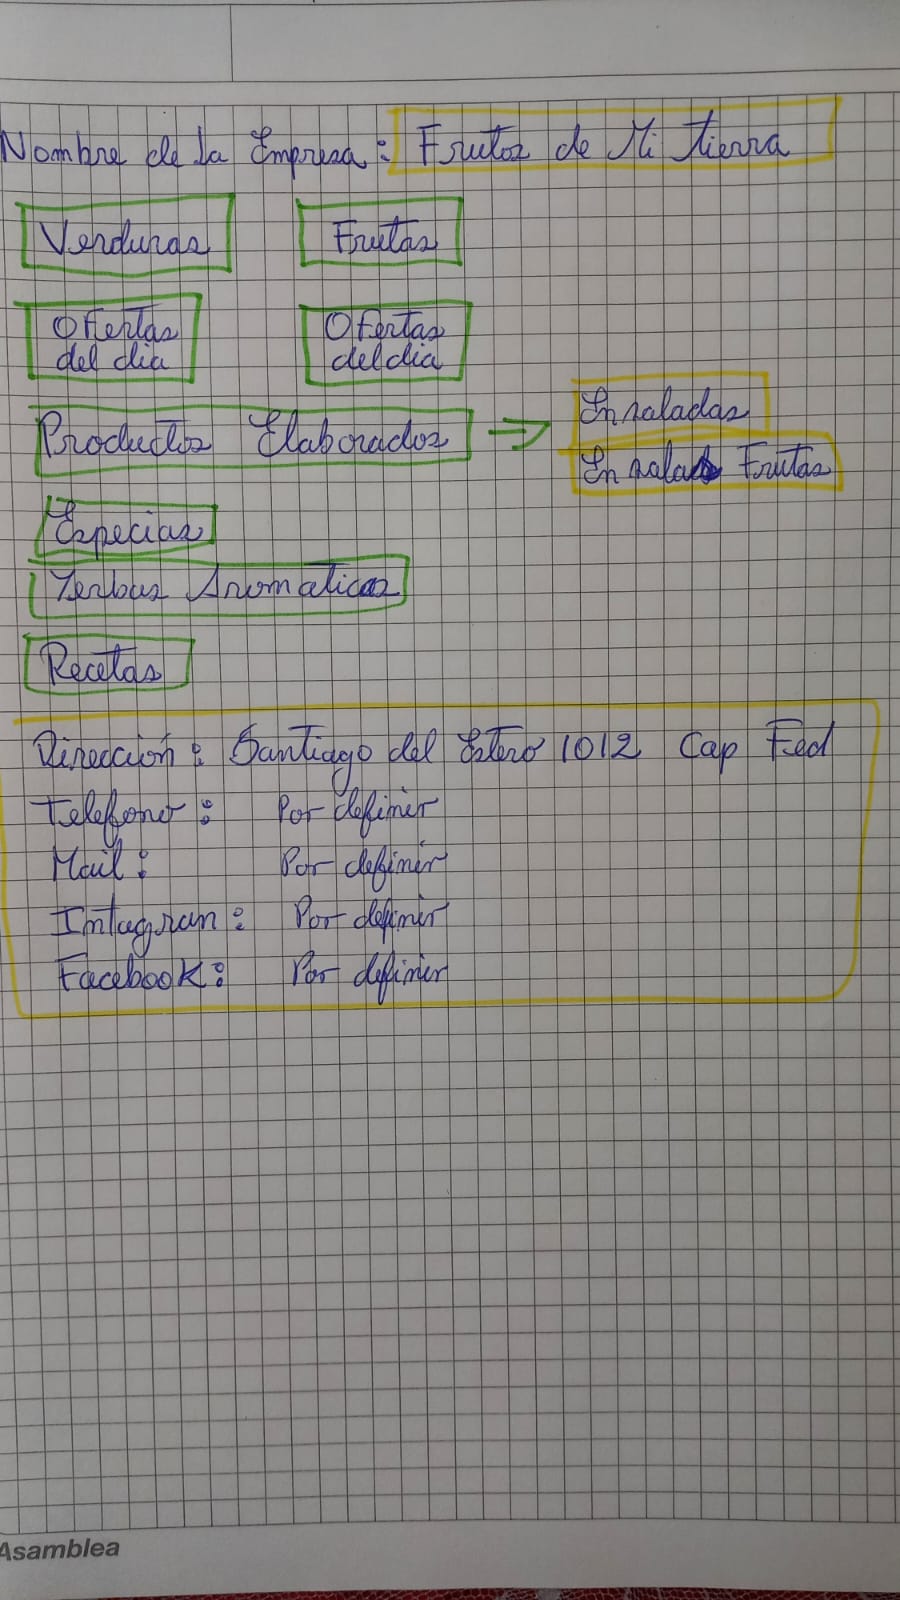 Nombre de la Empresa: Frutos de Mi tierra
Verduras Frutas
Ofertas del dia Ofertas del dia
Productos Elaborados → Ensaladas
Ensalada Frutas
Especias
Yerbas Aromaticas
Recetas
Dirección: Santiago del Estero 1012 Cap Fed
Telefono: Por definir
Mail: Por definir
Intagran: Por definir
Facebook: Por definir
Asamblea